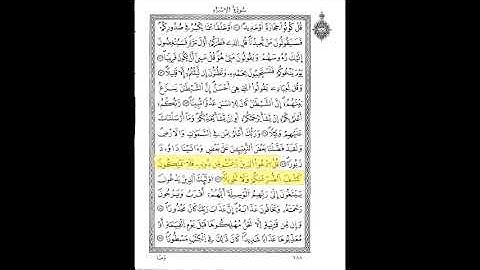 سُورَةُ الإِسْرَاء
قُلْ كُونُوا۟ حِجَارَةً أَوْ حَدِيدًا ۝ أَوْ خَلْقًا مِّمَّا يَكْبُرُ فِى صُدُورِكُمْ
فَسَيَقُولُونَ مَن يُعِيدُنَا قُلِ ٱلَّذِى فَطَرَكُمْ أَوَّلَ مَرَّةٍ فَسَيُنْغِضُونَ
إِلَيْكَ رُءُوسَهُمْ وَيَقُولُونَ مَتَىٰ هُوَ قُلْ عَسَىٰٓ أَن يَكُونَ قَرِيبًا ۝
يَوْمَ يَدْعُوكُمْ فَتَسْتَجِيبُونَ بِحَمْدِهِۦ وَتَظُنُّونَ إِن لَّبِثْتُمْ إِلَّا قَلِيلًا ۝
وَقُل لِّعِبَادِى يَقُولُوا۟ ٱلَّتِى هِىَ أَحْسَنُ إِنَّ ٱلشَّيْطَٰنَ يَنزَغُ
بَيْنَهُمْ إِنَّ ٱلشَّيْطَٰنَ كَانَ لِلْإِنسَٰنِ عَدُوًّا مُّبِينًا ۝ رَّبُّكُمْ
أَعْلَمُ بِكُمْ إِن يَشَأْ يَرْحَمْكُمْ أَوْ إِن يَشَأْ يُعَذِّبْكُمْ وَمَآ أَرْسَلْنَٰكَ
عَلَيْهِمْ وَكِيلًا ۝ وَرَبُّكَ أَعْلَمُ بِمَن فِى ٱلسَّمَٰوَٰتِ وَٱلْأَرْضِ
وَلَقَدْ فَضَّلْنَا بَعْضَ ٱلنَّبِيِّـۧنَ عَلَىٰ بَعْضٍ وَءَاتَيْنَا دَاوُۥدَ
زَبُورًا ۝ قُلِ ٱدْعُوا۟ ٱلَّذِينَ زَعَمْتُم مِّن دُونِهِۦ فَلَا يَمْلِكُونَ
كَشْفَ ٱلضُّرِّ عَنكُمْ وَلَا تَحْوِيلًا ۝ أُو۟لَٰٓئِكَ ٱلَّذِينَ يَدْعُونَ
يَبْتَغُونَ إِلَىٰ رَبِّهِمُ ٱلْوَسِيلَةَ أَيُّهُمْ أَقْرَبُ وَيَرْجُونَ
رَحْمَتَهُۥ وَيَخَافُونَ عَذَابَهُۥٓ إِنَّ عَذَابَ رَبِّكَ كَانَ مَحْذُورًا ۝
وَإِن مِّن قَرْيَةٍ إِلَّا نَحْنُ مُهْلِكُوهَا قَبْلَ يَوْمِ ٱلْقِيَٰمَةِ أَوْ
مُعَذِّبُوهَا عَذَابًا شَدِيدًا كَانَ ذَٰلِكَ فِى ٱلْكِتَٰبِ مَسْطُورًا ۝
٢٨٨ وَمَا